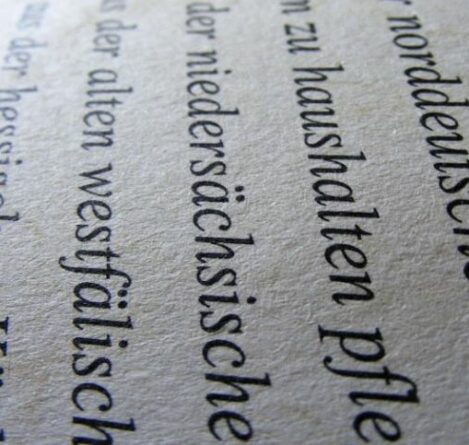 r norddeutsch
n zu haushalten pfle
der niedersächsische
s der alten westfälisch
aus der hessisch